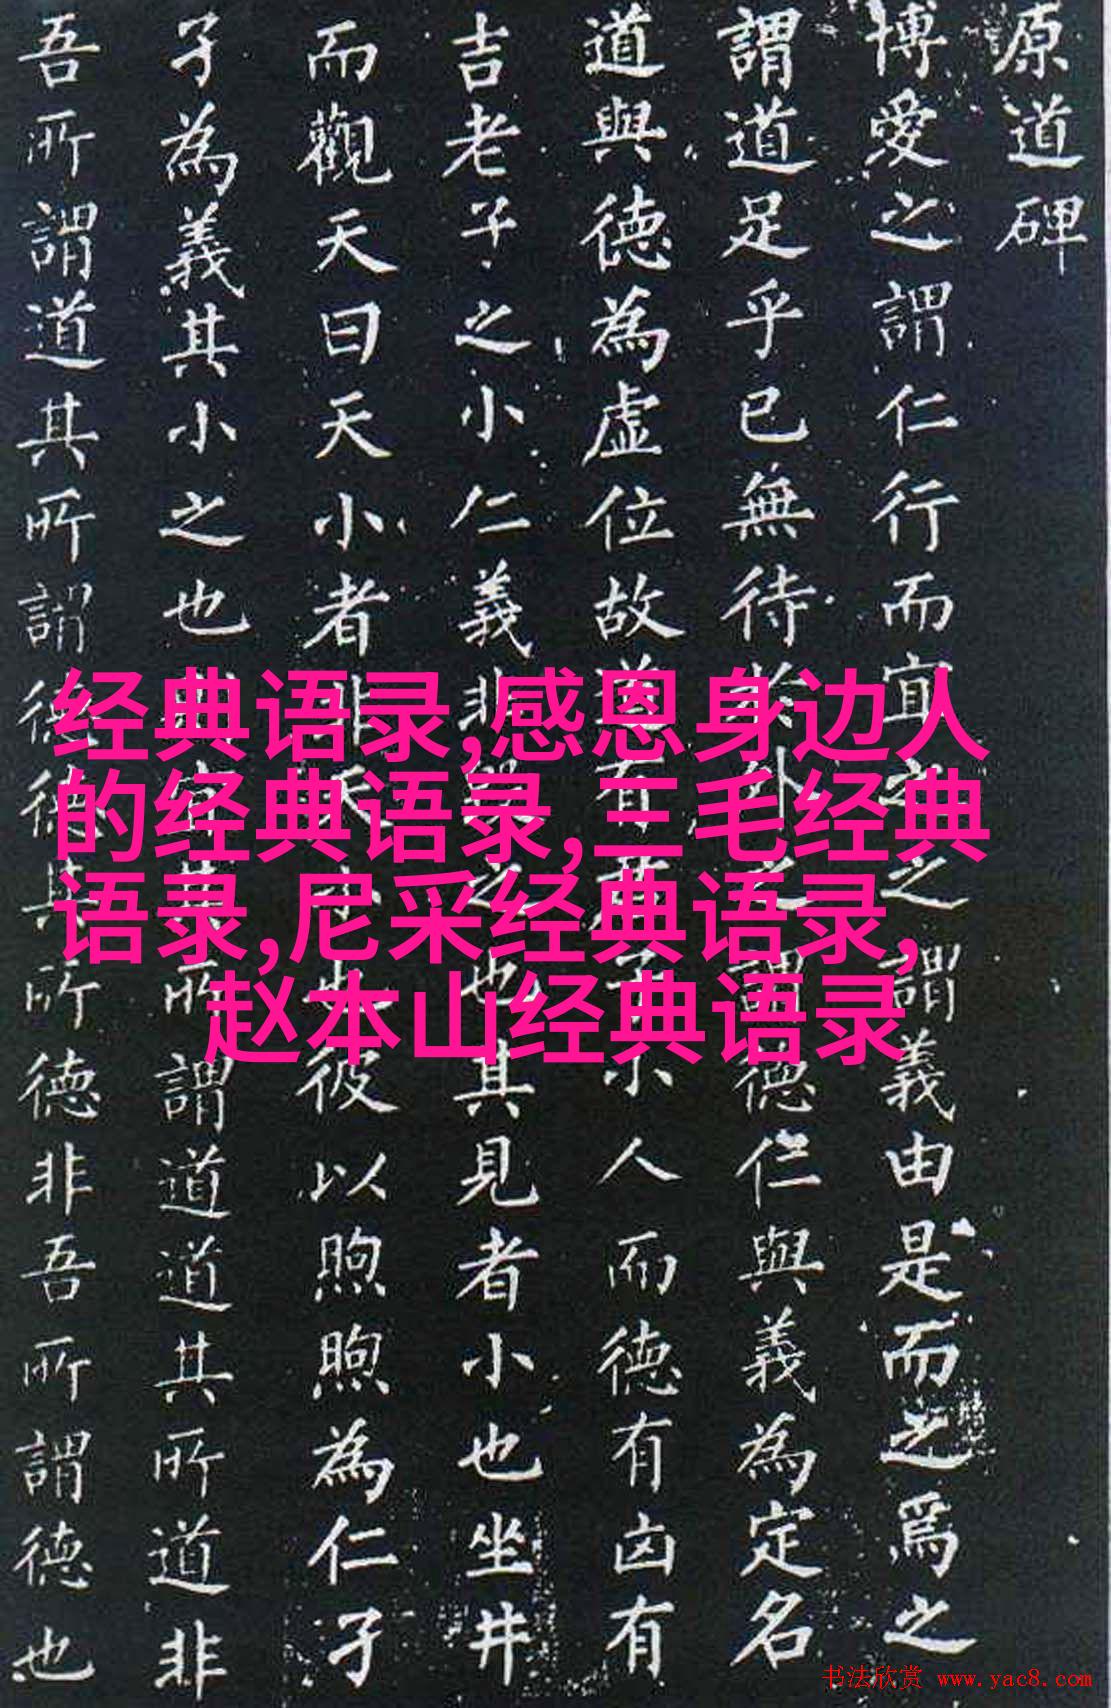 原道碑
博愛之謂仁行而宜之之謂義由是而之焉之
謂道足乎已無待於外之謂德仁與義為定名
道與德為虛位故道有君子小人而德有凶有
吉老子之小仁義非毀之也其見者小也坐井
而觀天曰天小者非天小也彼以煦煦為仁孑
孑為義其小之也則宜其所謂道道其所道非
吾所謂道其所謂德德其所德非吾所謂德也
经典语录,感恩身边人
的经典语录,三毛经典
语录,尼采经典语录,
赵本山经典语录
书法欣赏 www.yac8.com